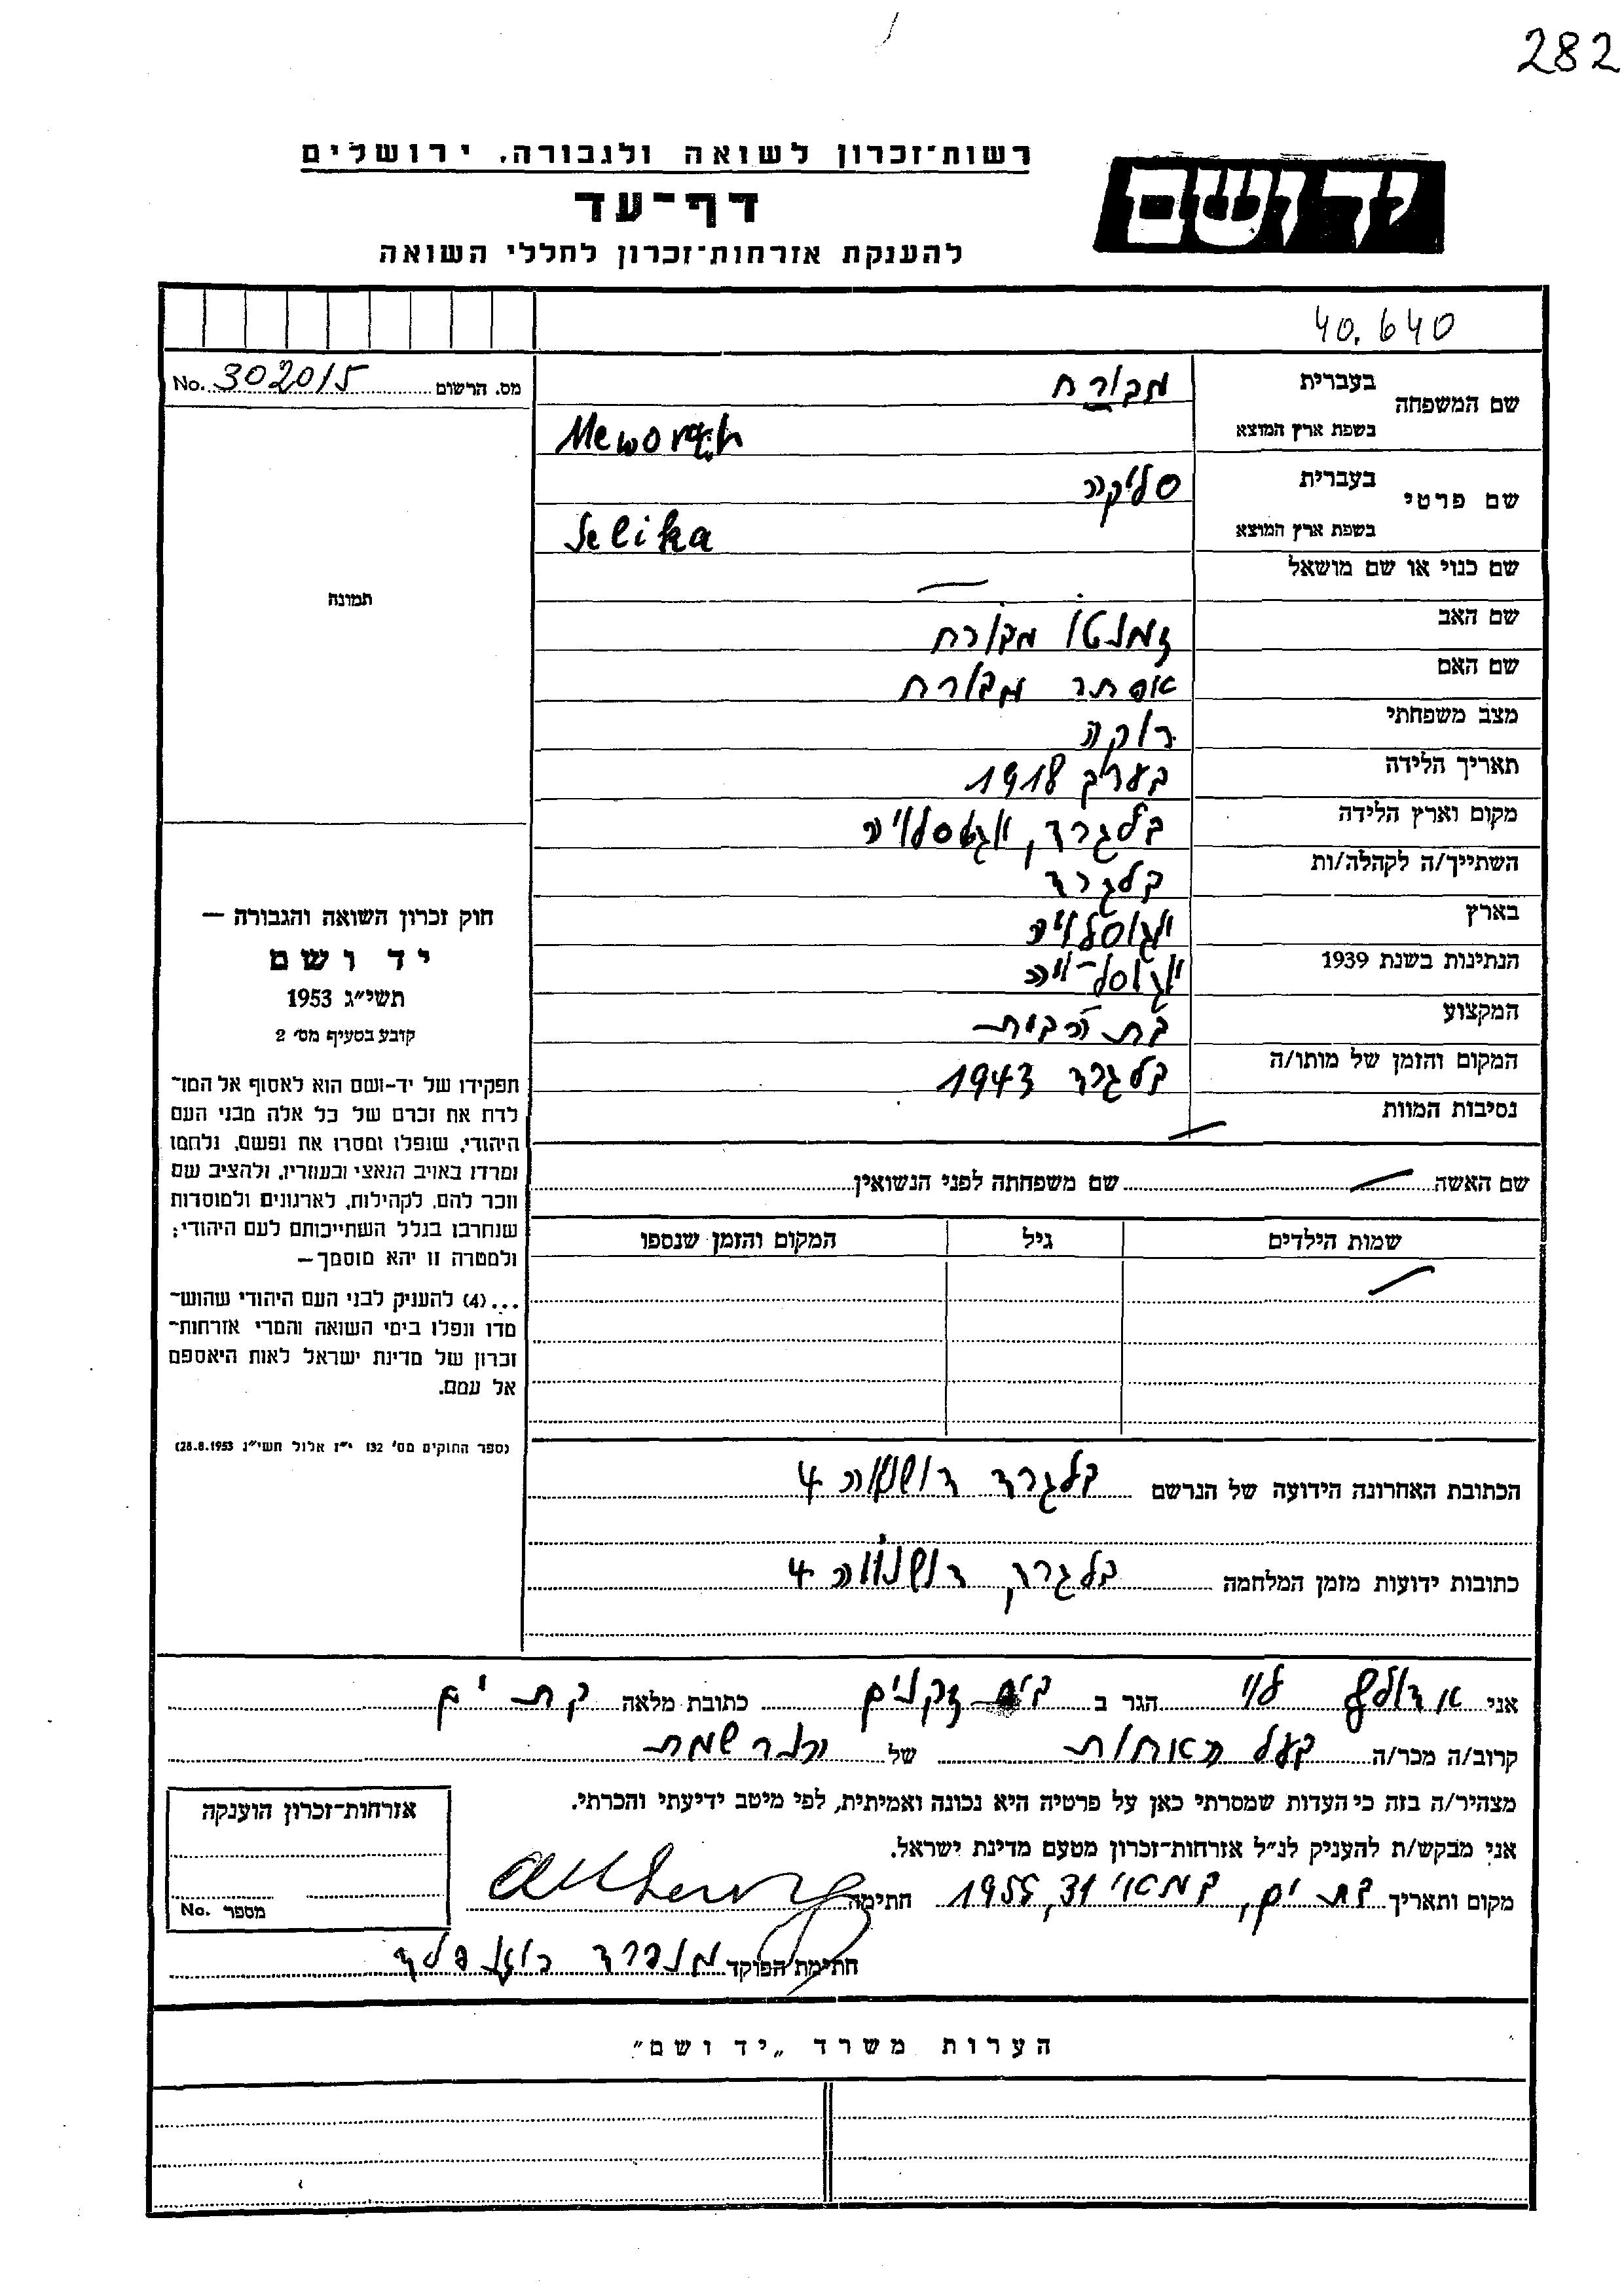 282
רשות־זכרון לשואה ולגבורה, ירושלים
יד ושם
דף־עד
להענקת אזרחות־זכרון לחללי השואה
40.640
מס. הרשום No. 302015
שם המשפחה בעברית מבורח
בשפת ארץ המוצא Meworah
שם פרטי בעברית סליקה
בשפת ארץ המוצא Selika
שם כנוי או שם מושאל —
שם האב זמנטו מבורח
שם האם אסתר מבורח
מצב משפחתי רוקה
תאריך הלידה בערך 1918
מקום וארץ הלידה בלגרד, יוגוסלויה
השתייך/ה לקהלה/ות בלגרד
בארץ יוגוסלויה
הנתינות בשנת 1939 יוגוסלויה
המקצוע בת הבית
המקום והזמן של מותו/ה בלגרד 1943
נסיבות המוות —
תמונה
חוק זכרון השואה והגבורה —
יד ושם
תשי״ג 1953
קובע בסעיף מס׳ 2
תפקידו של יד-ושם הוא לאסוף אל המו־
לדת את זכרם של כל אלה מבני העם
היהודי, שנפלו ומסרו את נפשם, נלחמו
ומרדו באויב הנאצי ובעוזריו, ולהציב שם
וזכר להם, לקהילות, לארגונים ולמוסדות
שנחרבו בגלל השתייכותם לעם היהודי;
ולמטרה זו יהא מוסמך —
...(4) להעניק לבני העם היהודי שהוש־
מדו ונפלו בימי השואה והמרי אזרחות־
זכרון של מדינת ישראל לאות היאספם
אל עמם.
(ספר החוקים מס׳ 132 י״ז אלול תשי״ג 28.8.1953)
שם האשה — שם משפחתה לפני הנשואין
שמות הילדים גיל המקום והזמן שנספו
—
הכתובת האחרונה הידועה של הנרשם בלגרד 4
כתובות ידועות מזמן המלחמה בלגרד, 4
אני אדולף לוי הגר ב בית זקנים כתובת מלאה בת ים
קרוב/ה מכר/ה בעל האחות של הנרשמת
מצהיר/ה בזה כי העדות שמסרתי כאן על פרטיה היא נכונה ואמיתית, לפי מיטב ידיעתי והכרתי.
אני מבקש/ת להעניק לנ״ל אזרחות־זכרון מטעם מדינת ישראל.
מקום ותאריך בת ים, במאי 31, 1955 חתימה
חתימת הפוקד מנפרד רוזנפלד
אזרחות־זכרון הוענקה
מספר No.
הערות משרד „יד ושם”